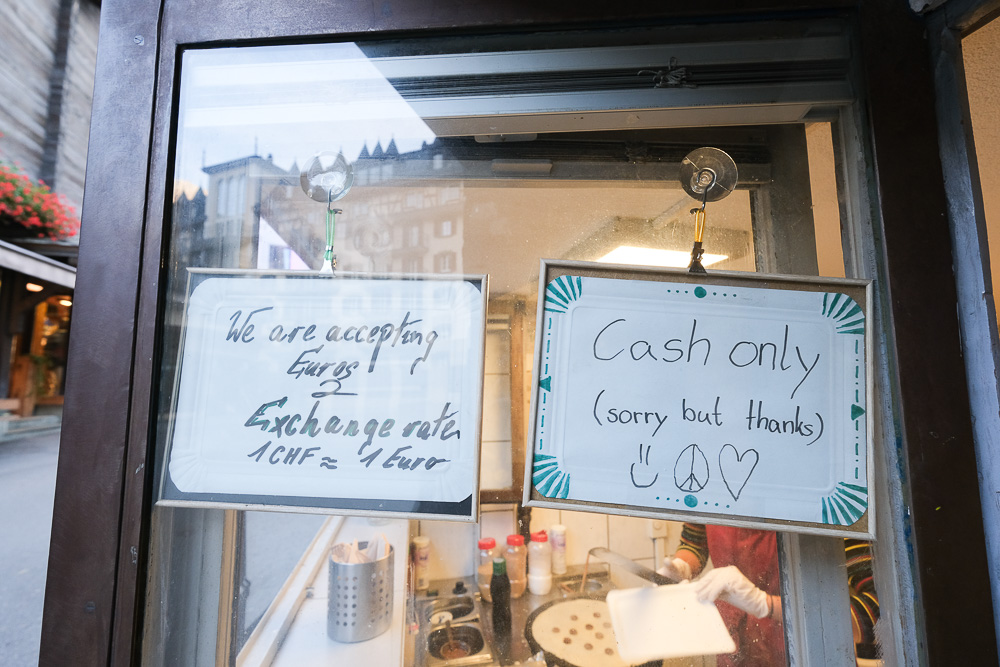 We are accepting
Euros
Exchange rate
1 CHF ≈ 1 Euro
Cash only
(sorry but thanks)